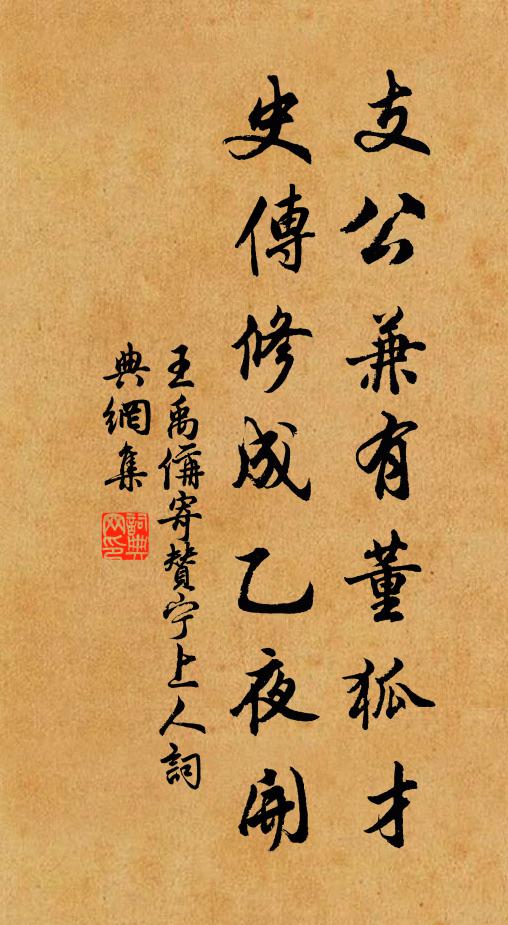 支公兼有董狐才
史傳修成乙夜開
王禹偁寄贊宁上人詞
典網集
詞典网印